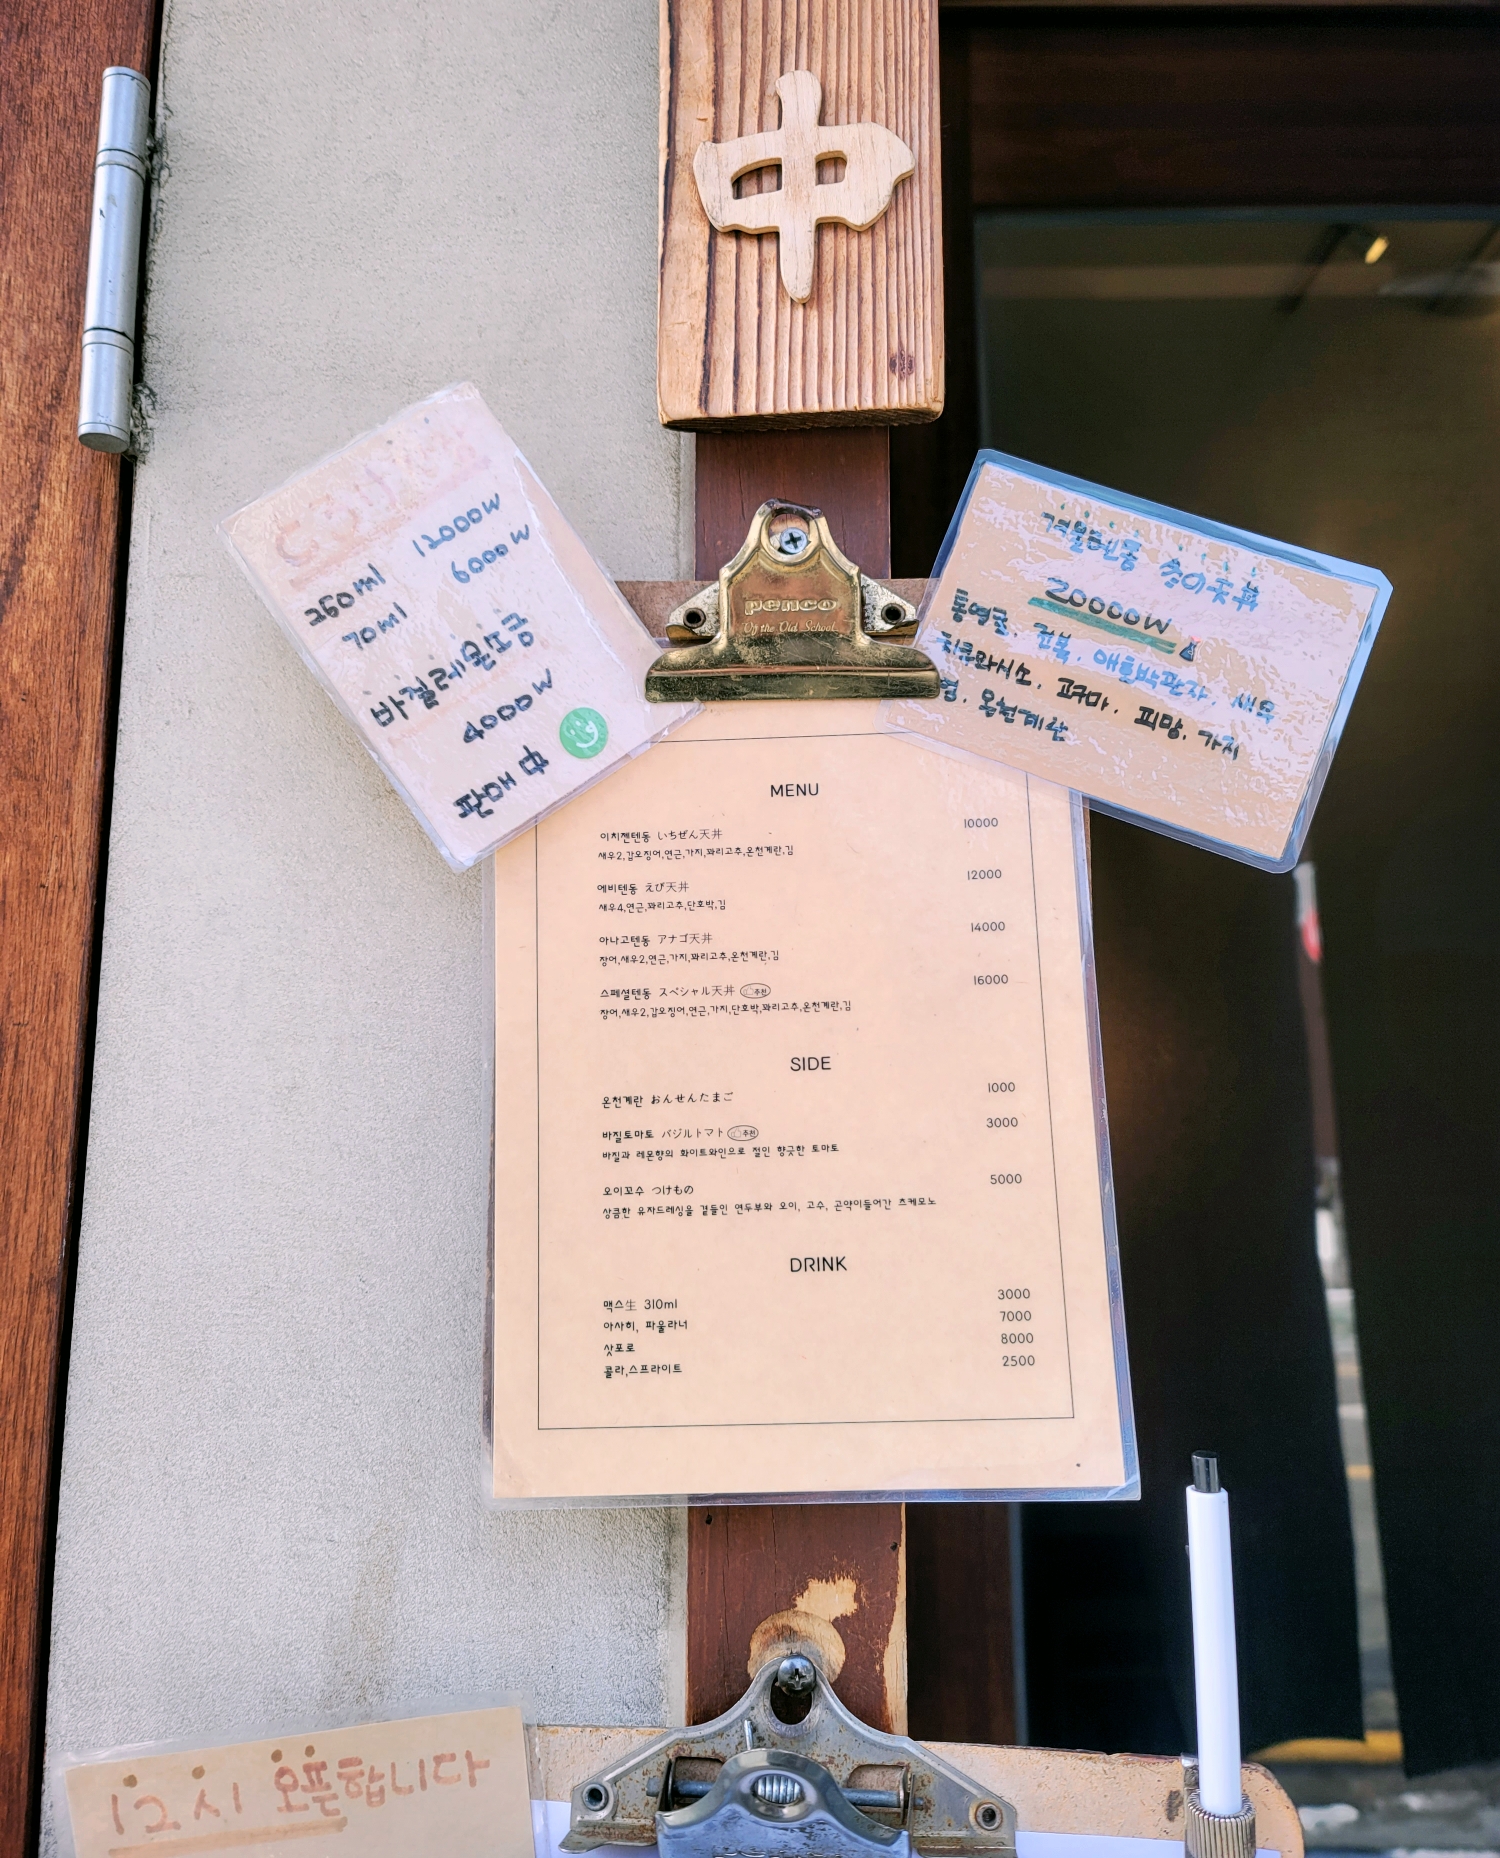 中
12000W
260ml
6000W
70ml
바질레몬토닉
4000W
中
판매
penco
Up the Old School
겨울텐동
20000W
통영굴, 전복, 애호박관자, 새우
고구마, 피망, 가지
온천계란
MENU
이치젠텐동 いちぜん天丼 10000
새우2,갑오징어,연근,가지,꽈리고추,온천계란,김
에비텐동 えび天丼 12000
새우4,연근,꽈리고추,단호박,김
아나고텐동 アナゴ天丼 14000
장어,새우2,연근,가지,꽈리고추,온천계란,김
스페셜텐동 スペシャル天丼 추천 16000
장어,새우2,갑오징어,연근,가지,단호박,꽈리고추,온천계란,김
SIDE
온천계란 おんせんたまご 1000
바질토마토 バジルトマト 추천 3000
바질과 레몬향의 화이트와인으로 절인 향긋한 토마토
오이꼬수 つけもの 5000
상큼한 유자드레싱을 곁들인 연두부와 오이, 고수, 곤약이들어간 츠케모노
DRINK
맥스生 310ml 3000
아사히, 파울라너 7000
삿포로 8000
콜라,스프라이트 2500
12시 오픈합니다